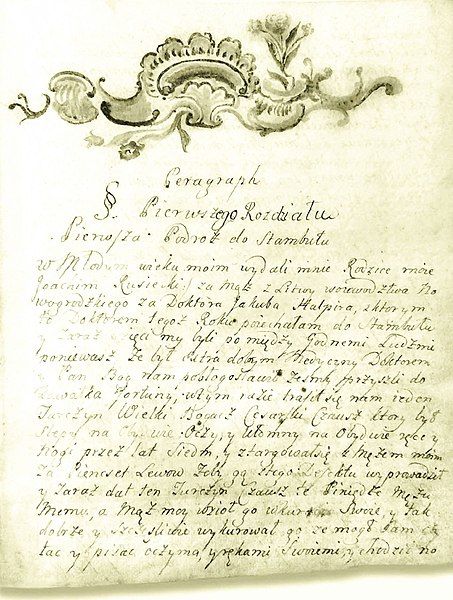 Peragraph
§. Pierwszego Rozdziału
Pierwsza Podroż do Stambułu
w Młodym wieku moim wydali mnie Rodzice moie
Joachim Rusiecki za mąż z Litwy woiewodztwa No
wogrodzkiego za Doktora Jakuba Halpira, z ktorym
to Doktorem tegoż Roku poiechałam do Stambułu
y zaraz wzięci my byli po między Godnemi Ludzmi
poniewasz że był extra dobrym Medyczny Doktorem
y Pan Bog nam pobłogosławił żeśmy przyszli do
kawałka Fortuny, w tym razie trafił się nam ieden
Turczyn Wielki Bogacz Cesarski Czausz ktory był
slepy na Obydwie Oczy, y ułomny na Obydwie ręce y
Nogi przez lat Siedm, y ztargował się z Mężem moim
za Piencset Lewow żeby go z tego Defektu wyprowadził
y zaraz dał ten Turczyn Czausz te Piniędze Mężu
Memu, a Mąż moy wzioł go w kuracyą Swoię, y tak
dobrze y szczęsliwie wykurował go że mogł Sam czy
tac y pisac oczyma y rękami Swoiemi, y chodzic no